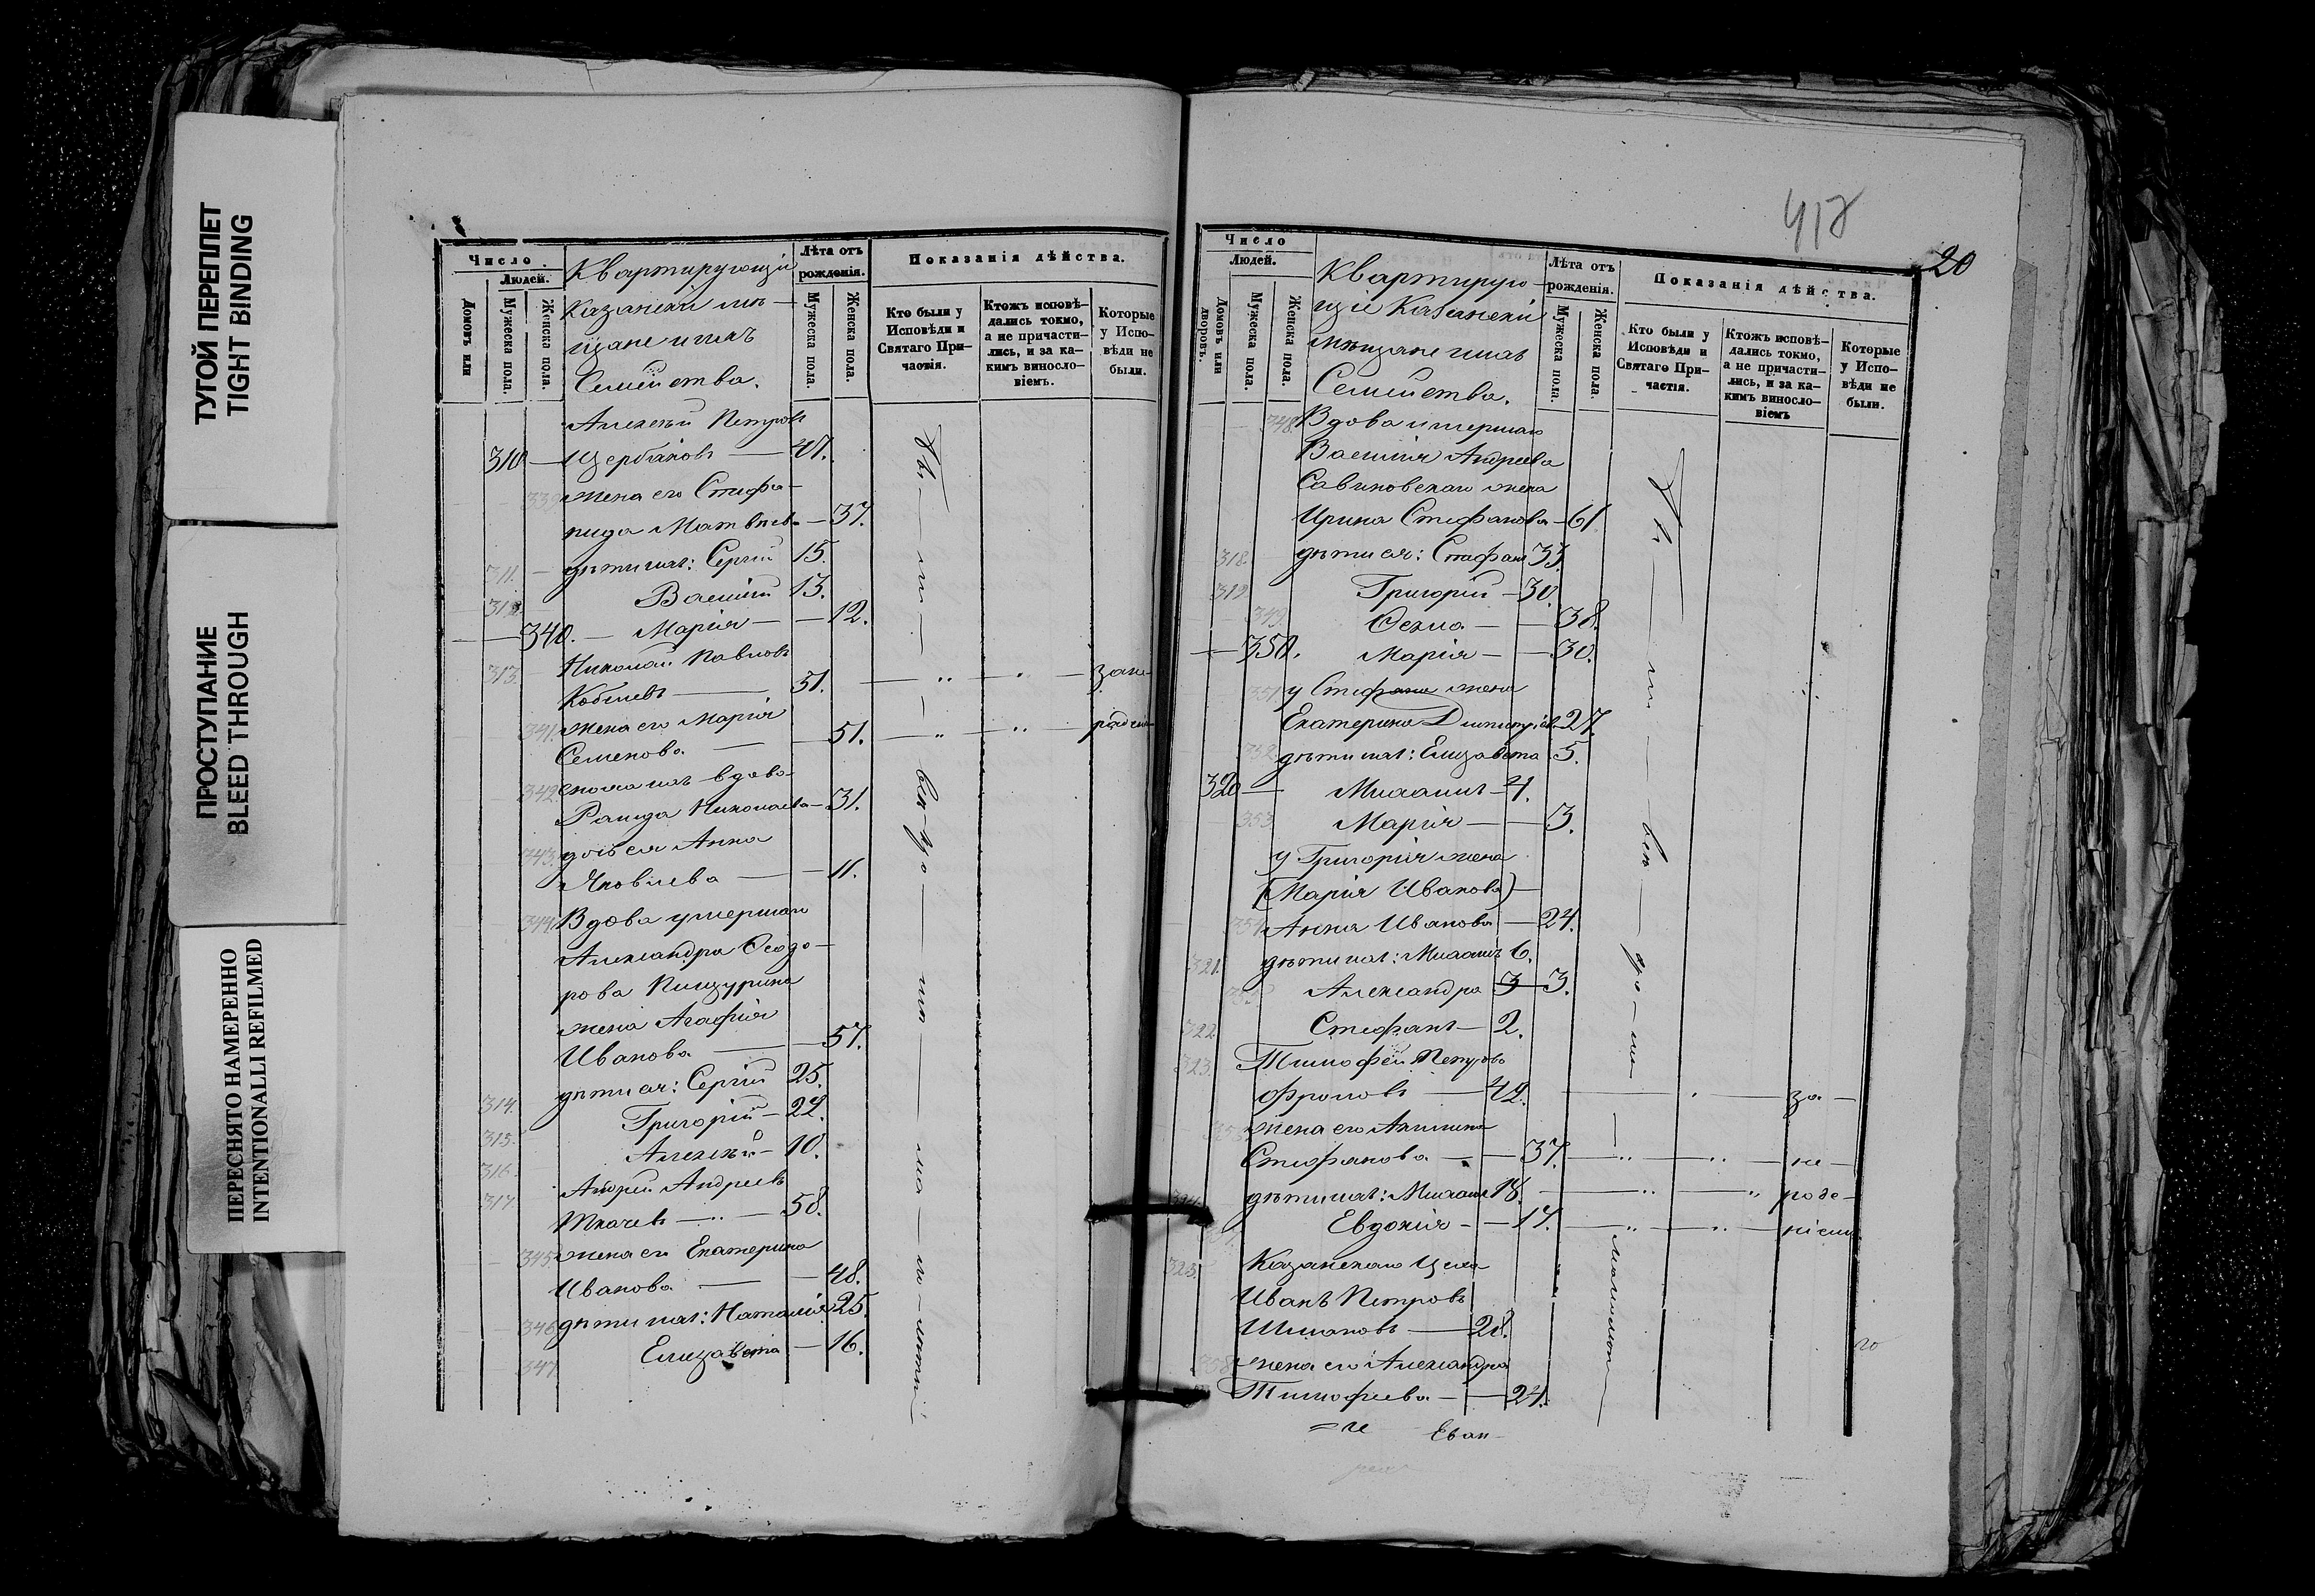 ТУГОЙ ПЕРЕПЛЕТ
TIGHT BINDING
ПРОСТУПАНИЕ
BLEED THROUGH
ПЕРЕСНЯТО НАМЕРЕННО
INTENTIONALLI REFILMED
Число
Людей.
Домовъ или
Мужеска пола.
Женска пола.
Квартирующіи
Казанскіи мѣ-
щане и ихъ
Семейства.
Лѣта отъ
рожденія.
Мужеска пола.
Женска пола.
Показанія дѣйства.
Кто были у
Исповѣди и
Святаго При-
частія.
Ктожъ исповѣ-
дались токмо,
а не причасти-
лись, и за ка-
кимъ винсло-
віемъ.
Которые
у Испо-
вѣди не
были.
Алексѣй Петровъ
310 — Щербаковъ — 47.
339 жена его Стефа-
нида Матвѣева — 37.
311. — дѣти ихъ: Сергій 15.
312. Василій 13.
340. — Марія — 12.
313. Николай Павловъ
Кобелевъ — 51.
341. жена его Марія
Семенова — 51.
342. сноха ихъ вдова
Раида Николаева — 31.
343. дочь ея Анна
Яковлева — 11.
344. Вдова умершаго
Александра Ѳеодо-
рова Пищурина
жена Агафія
Иванова — 57.
314. дѣти ея: Сергій 25.
315. Григорій — 22.
316. Алексѣй — 10.
317 Андрей Андреевъ
Ткачевъ — 58.
345. жена его Екатерина
Иванова — 48.
346 дѣти ихъ: Наталія 25.
347 Елизавета — 16.
418
20
Число
Людей.
Домовъ или
дворовъ.
Мужеска пола.
Женска пола.
Квартирую-
щіе Казанскіи
мѣщане и ихъ
Семейства.
Лѣта отъ
рожденія.
Мужеска пола.
Женска пола.
Показанія дѣйства.
Кто были у
Исповѣди и
Святаго При-
частія.
Ктожъ исповѣ-
дались токмо,
а не причасти-
лись, и за ка-
кимъ винсло-
віемъ
Которые
у Испо-
вѣди не
были.
348. Вдова умершаго
Василія Андреева
Савиновскаго жена
Ирина Стефанова — 61.
318. дѣти ея: Стефанъ 33.
319 Григорій — 30.
349. Ѳекла — 38.
350. Марія — 30.
351 у Стефана жена
Екатерина Димитріева 27.
352 дѣти ихъ: Елизавета 5.
320 — Михаилъ — 4.
353 Марія — 3.
у Григорія жена
(Марія Иванова) —
354 Анна Иванова — 24.
321. дѣти ихъ: Михаилъ 6.
355 Александра 3 — 3.
322 Стефанъ — 2.
323. Тимофей Петровъ
Фроловъ — 42. за —
жена его Акилина
Стефанова — 37. не —
324 дѣти ихъ: Михаилъ 18. раде —
Евдокія — 17. ніемъ
325. Казанскаго Цеха
Иванъ Петровъ
Шмаковъ — 28.
358 жена его Александра
Тимофеева — 24.